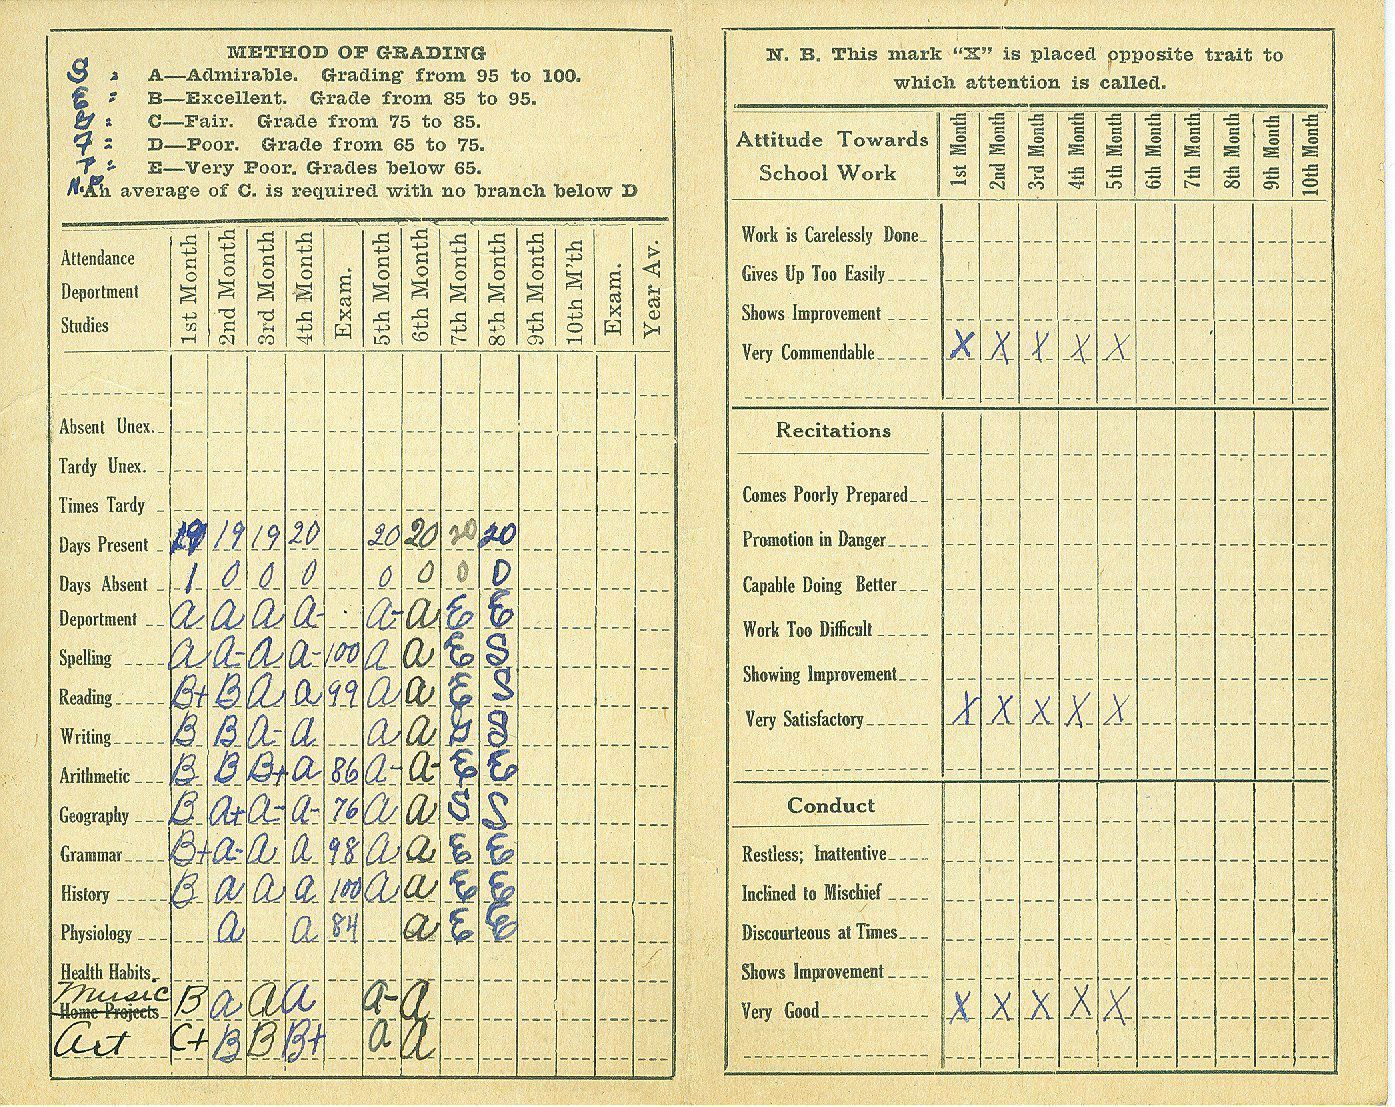 METHOD OF GRADING
S " A—Admirable. Grading from 95 to 100.
E " B—Excellent. Grade from 85 to 95.
" C—Fair. Grade from 75 to 85.
" D—Poor. Grade from 65 to 75.
" E—Very Poor. Grades below 65.
N.B. An average of C. is required with no branch below D
Attendance
Deportment
Studies
1st Month 2nd Month 3rd Month 4th Month Exam. 5th Month 6th Month 7th Month 8th Month 9th Month 10th M'th Exam. Year Av.
Absent Unex.
Tardy Unex.
Times Tardy
Days Present 19 19 19 20 20 20 20 20
Days Absent 1 0 0 0 0 0 0 0
Deportment a a a a- a- a E E
Spelling a a- a a- 100 a a E S
Reading B+ B a a 99 a a E S
Writing B B a- a a a S S
Arithmetic B B B+ a 86 a- a- E E
Geography B a+ a- a- 76 a a S S
Grammar B+ a- a a 98 a a E E
History B a a a 100 a a E E
Physiology a a 84 a E E
Health Habits
Music
Home Projects B a a a a- a
Art C+ B B B+ a a
N. B. This mark "X" is placed opposite trait to
which attention is called.
Attitude Towards
School Work
1st Month 2nd Month 3rd Month 4th Month 5th Month 6th Month 7th Month 8th Month 9th Month 10th Month
Work is Carelessly Done
Gives Up Too Easily
Shows Improvement
Very Commendable X X X X X
Recitations
Comes Poorly Prepared
Promotion in Danger
Capable Doing Better
Work Too Difficult
Showing Improvement
Very Satisfactory X X X X X
Conduct
Restless; Inattentive
Inclined to Mischief
Discourteous at Times
Shows Improvement
Very Good X X X X X